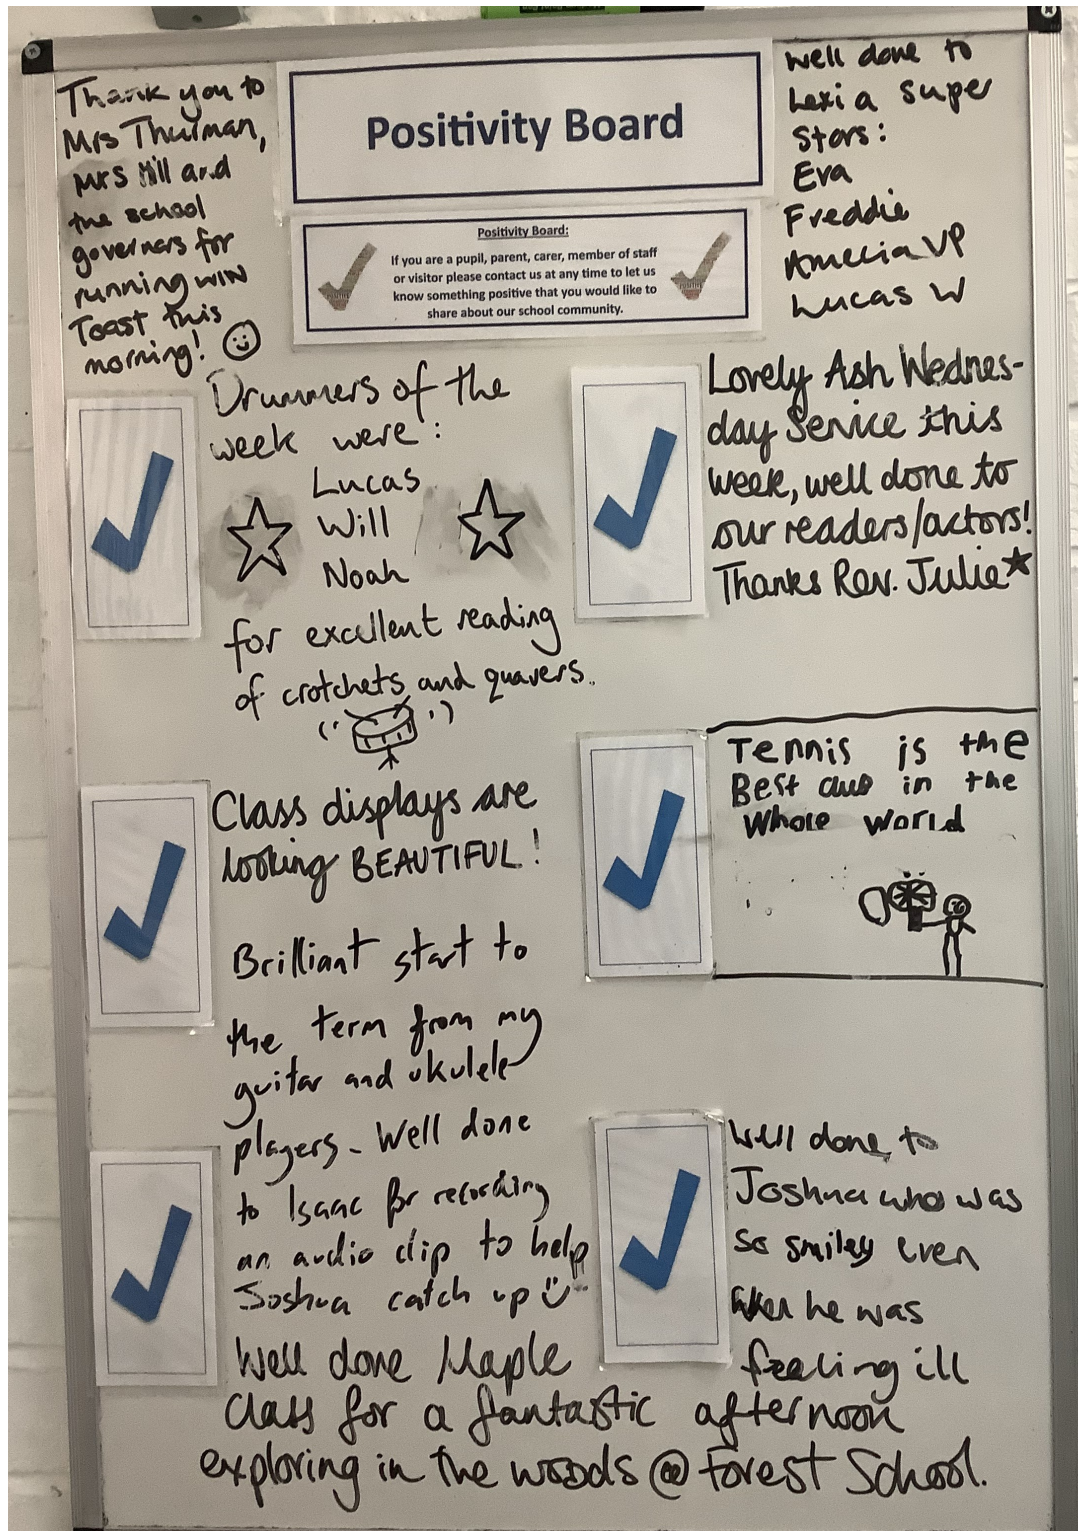 Thank you to
Mrs Thurman,
Mrs Hill and
the school
governors for
running WIN
Toast this
morning!
Positivity Board
Positivity Board:
If you are a pupil, parent, carer, member of staff
or visitor please contact us at any time to let us
know something positive that you would like to
share about our school community.
Well done to
Lexia super
stars:
Eva
Freddie
Amelia VP
Lucas W
Drummers of the
week were:
Lucas
Will
Noah
for excellent reading
of crotchets and quavers.
Lovely Ash Wednes-
day Service this
week, well done to
our readers/actors!
Thanks Rev. Julie
Class displays are
looking BEAUTIFUL!
Tennis is the
Best club in the
whole world
Brilliant start to
the term from my
guitar and ukulele
players. Well done
to Isaac for recording
an audio clip to help
Joshua catch up
Well done to
Joshua who was
so smiley even
when he was
feeling ill
Well done Maple
Class for a fantastic afternoon
exploring in the woods @ Forest School.